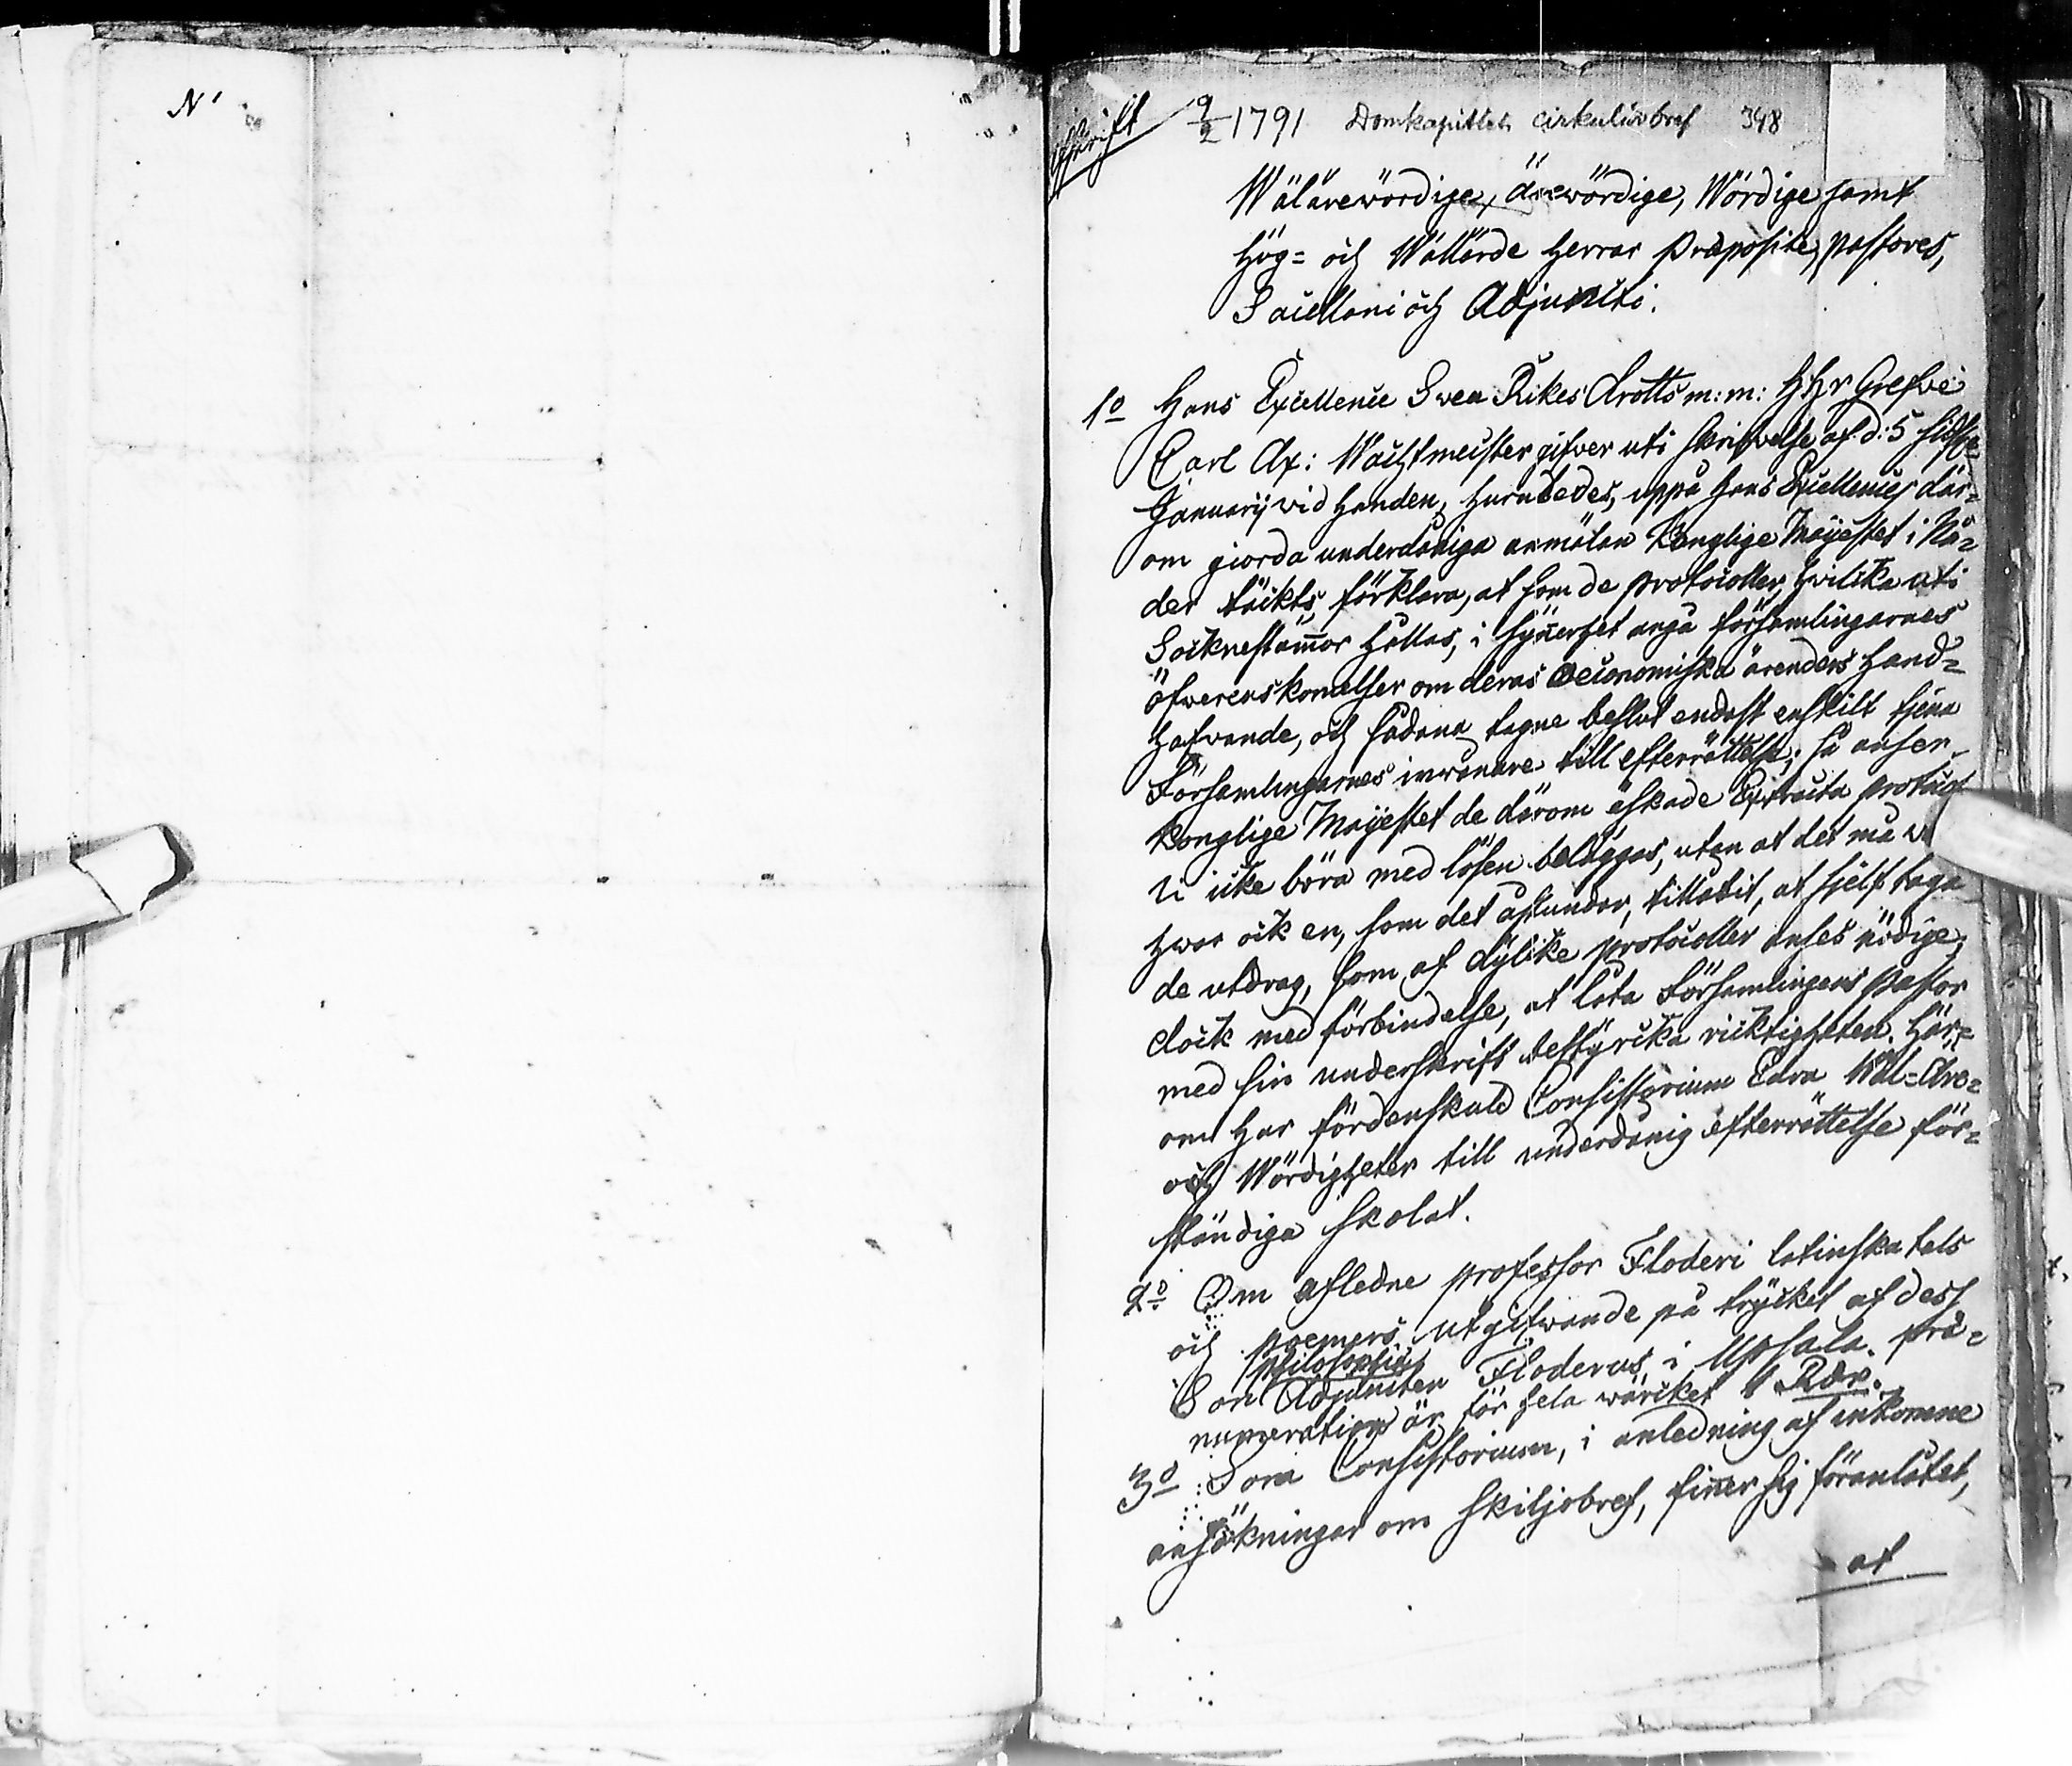 N'
Afskrift 9/2 1791 Domkapitlets cirkulärbref 348
Wälärewördige, ärewördige, Wördige samt
Hög= och Wällärde Herrar Præposite, pastores,
Sacellani och Adjuncti.
1o Hans Excellence Swea Rikes Drotts m:m: H Hr Grefve
Carl Ax: Wachtmeister gifver uti skrifvelse af d: 5 sidstl
Januarij vid handen, hurutedes, uppå Hans Excellences där=
om giorda underdåniga anmälan Konglige Mayestet i Nå=
der täckts förklara, at som de protocoller, hvilka uti
Socknestämmor hållas, i synnerhet angå församlingarnes
öfverenskomelser om deras oeconomiska ärenders hand=
hafvande, och sådana tagne beslut endast enskilt tjena
Församlingarnes invånare till efterrättelse; så anser
Konglige Mayestet de därom äskade Extracta protocol
li icke böra med lösen beläggas, utan at det må w
hvar ock en, som det åstundar, tillåtit, at sjelf taga
de utdrag, som af dylike protocoller anses nödige;
dock med förbindelse, at låta Församlingens pastor
med sin underskrift bestyrcka ricktigheten. Här=
om har fördenskuld Consistorium Edra Wäl-Äre=
och Wördigheter till underdånig efterrättelse för=
ständiga skolat.
2o Om afledne professor Floderi latinska tals
och poemers utgifwande på trycket af dess
Son philosophiæ Adjuncten Floderus i Upsala. præ=
numeration är för hela wärcket 1 Rdr.
3o Som Consistorium, i anledning af inkomne
ansökningar om skiljobref, finner sig föranlåtet,
at